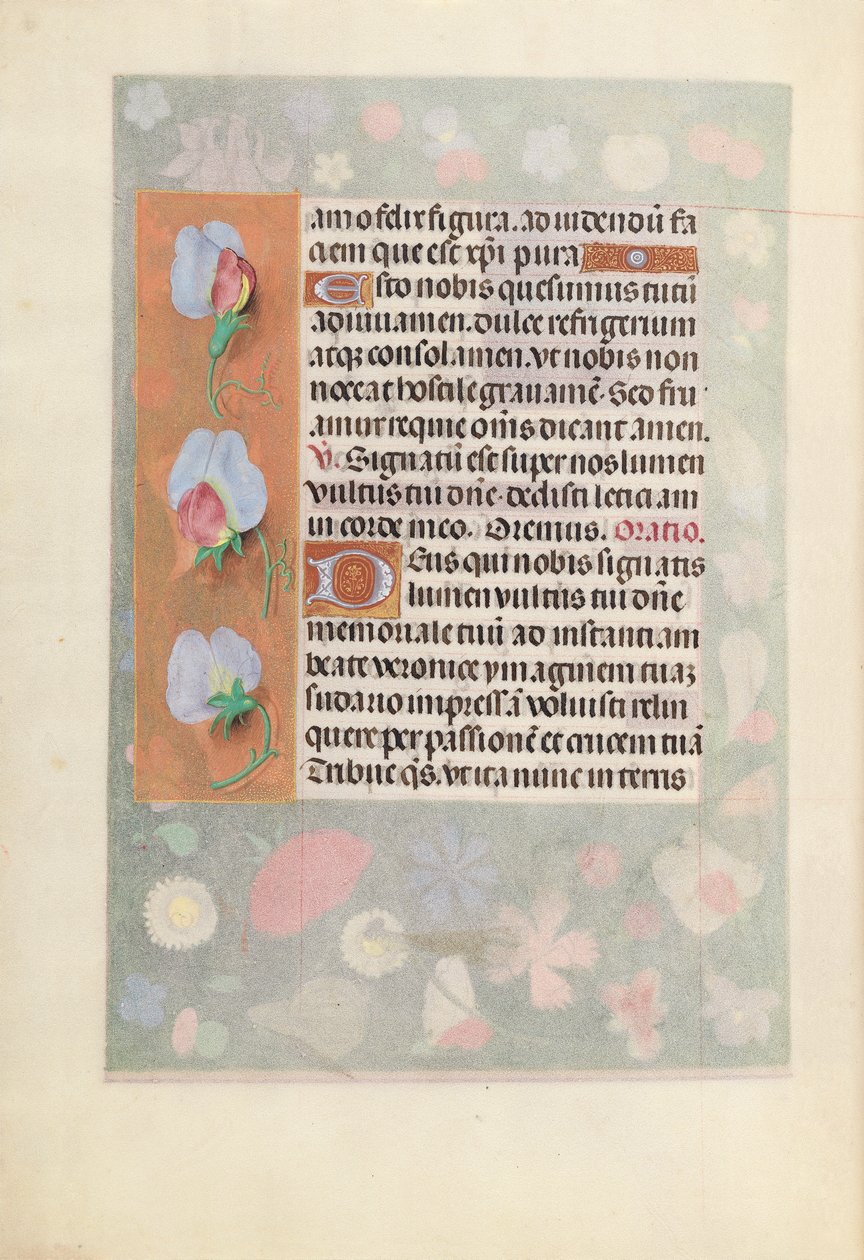 am o felix figura. ad videndū fa
ciem que est xp̄i pura
Esto nobis quesumus tutū
adiuuamen. dulce refrigerium
atqꝫ consolamen. vt nobis non
noceat hostile grauamē. Sed fru
amur requie om̄s dicant amen.
V̄. Signatū est super nos lumen
vultus tui dn̄e. dedisti leticiam
in corde meo. Oremus. Oratio.
Deus qui nobis signatis
lumen vultus tui dn̄e
memoriale tuū ad instantiam
beate veronice ymaginem tuaꝫ
sudario impressā voluisti relin
quere per passionē et crucem tuā
Tribue q̄s. vt ita nunc in terris